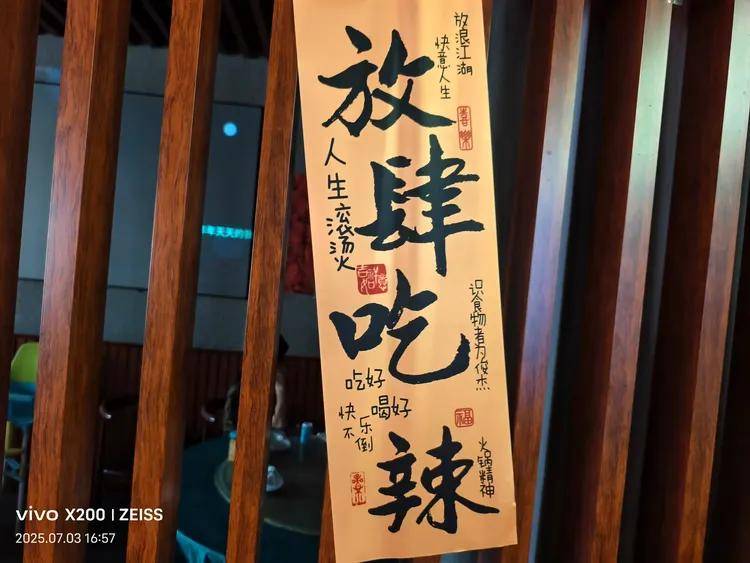 放肆吃辣
放浪江湖
快意人生
喜樂
人生滚滚汤火
吉祥如意
识食物者为俊杰
吃好
喝好
快乐
不倒
福
火锅精神
天天的
vivo X200 | ZEISS
2025.07.03 16:57